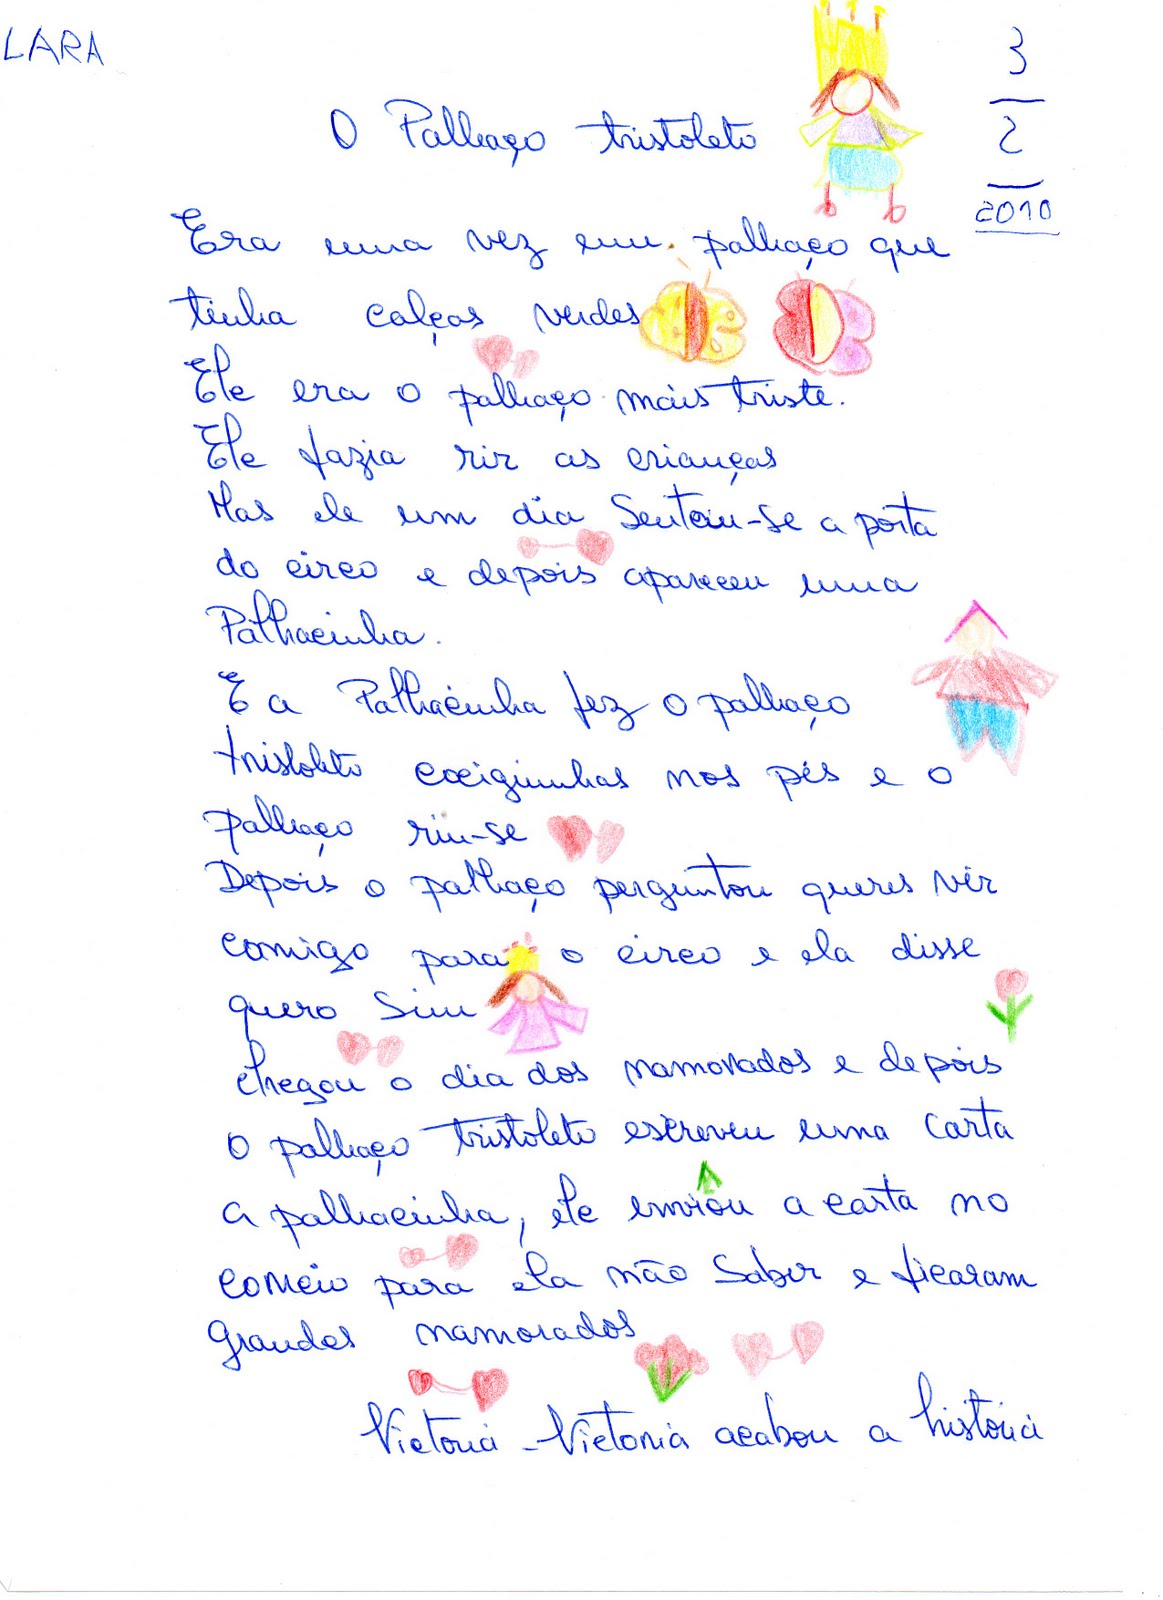 LARA
3
2
2010
O Palhaço tristoleto
Era uma vez um palhaço que
tinha calças verdes
Ele era o palhaço mais triste.
Ele fazia rir as crianças
Mas ele um dia Sentou-se a porta
do circo e depois apareceu uma
Palhacinha.
E a Palhacinha fez o palhaço
tristoleto cociguinhas nos pés e o
palhaço riu-se
Depois o palhaço perguntou queres vir
comigo para o circo e ela disse
quero Sim
chegou o dia dos namorados e depois
O palhaço tristoleto escreveu uma carta
a palhacinha, ele enviou a carta no
correio para ela não Saber e ficaram
grandes namorados
Victória -Victória acabou a história